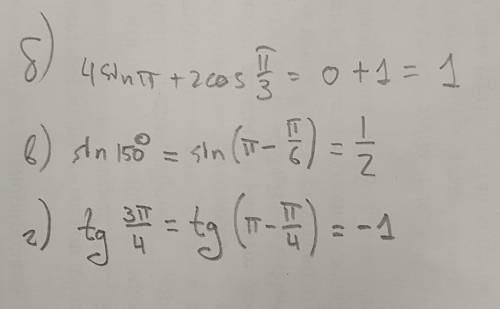 б) 4sinπ + 2cos π/3 = 0 + 1 = 1
в) sin 150° = sin(π - π/6) = 1/2
г) tg 3π/4 = tg(π - π/4) = -1